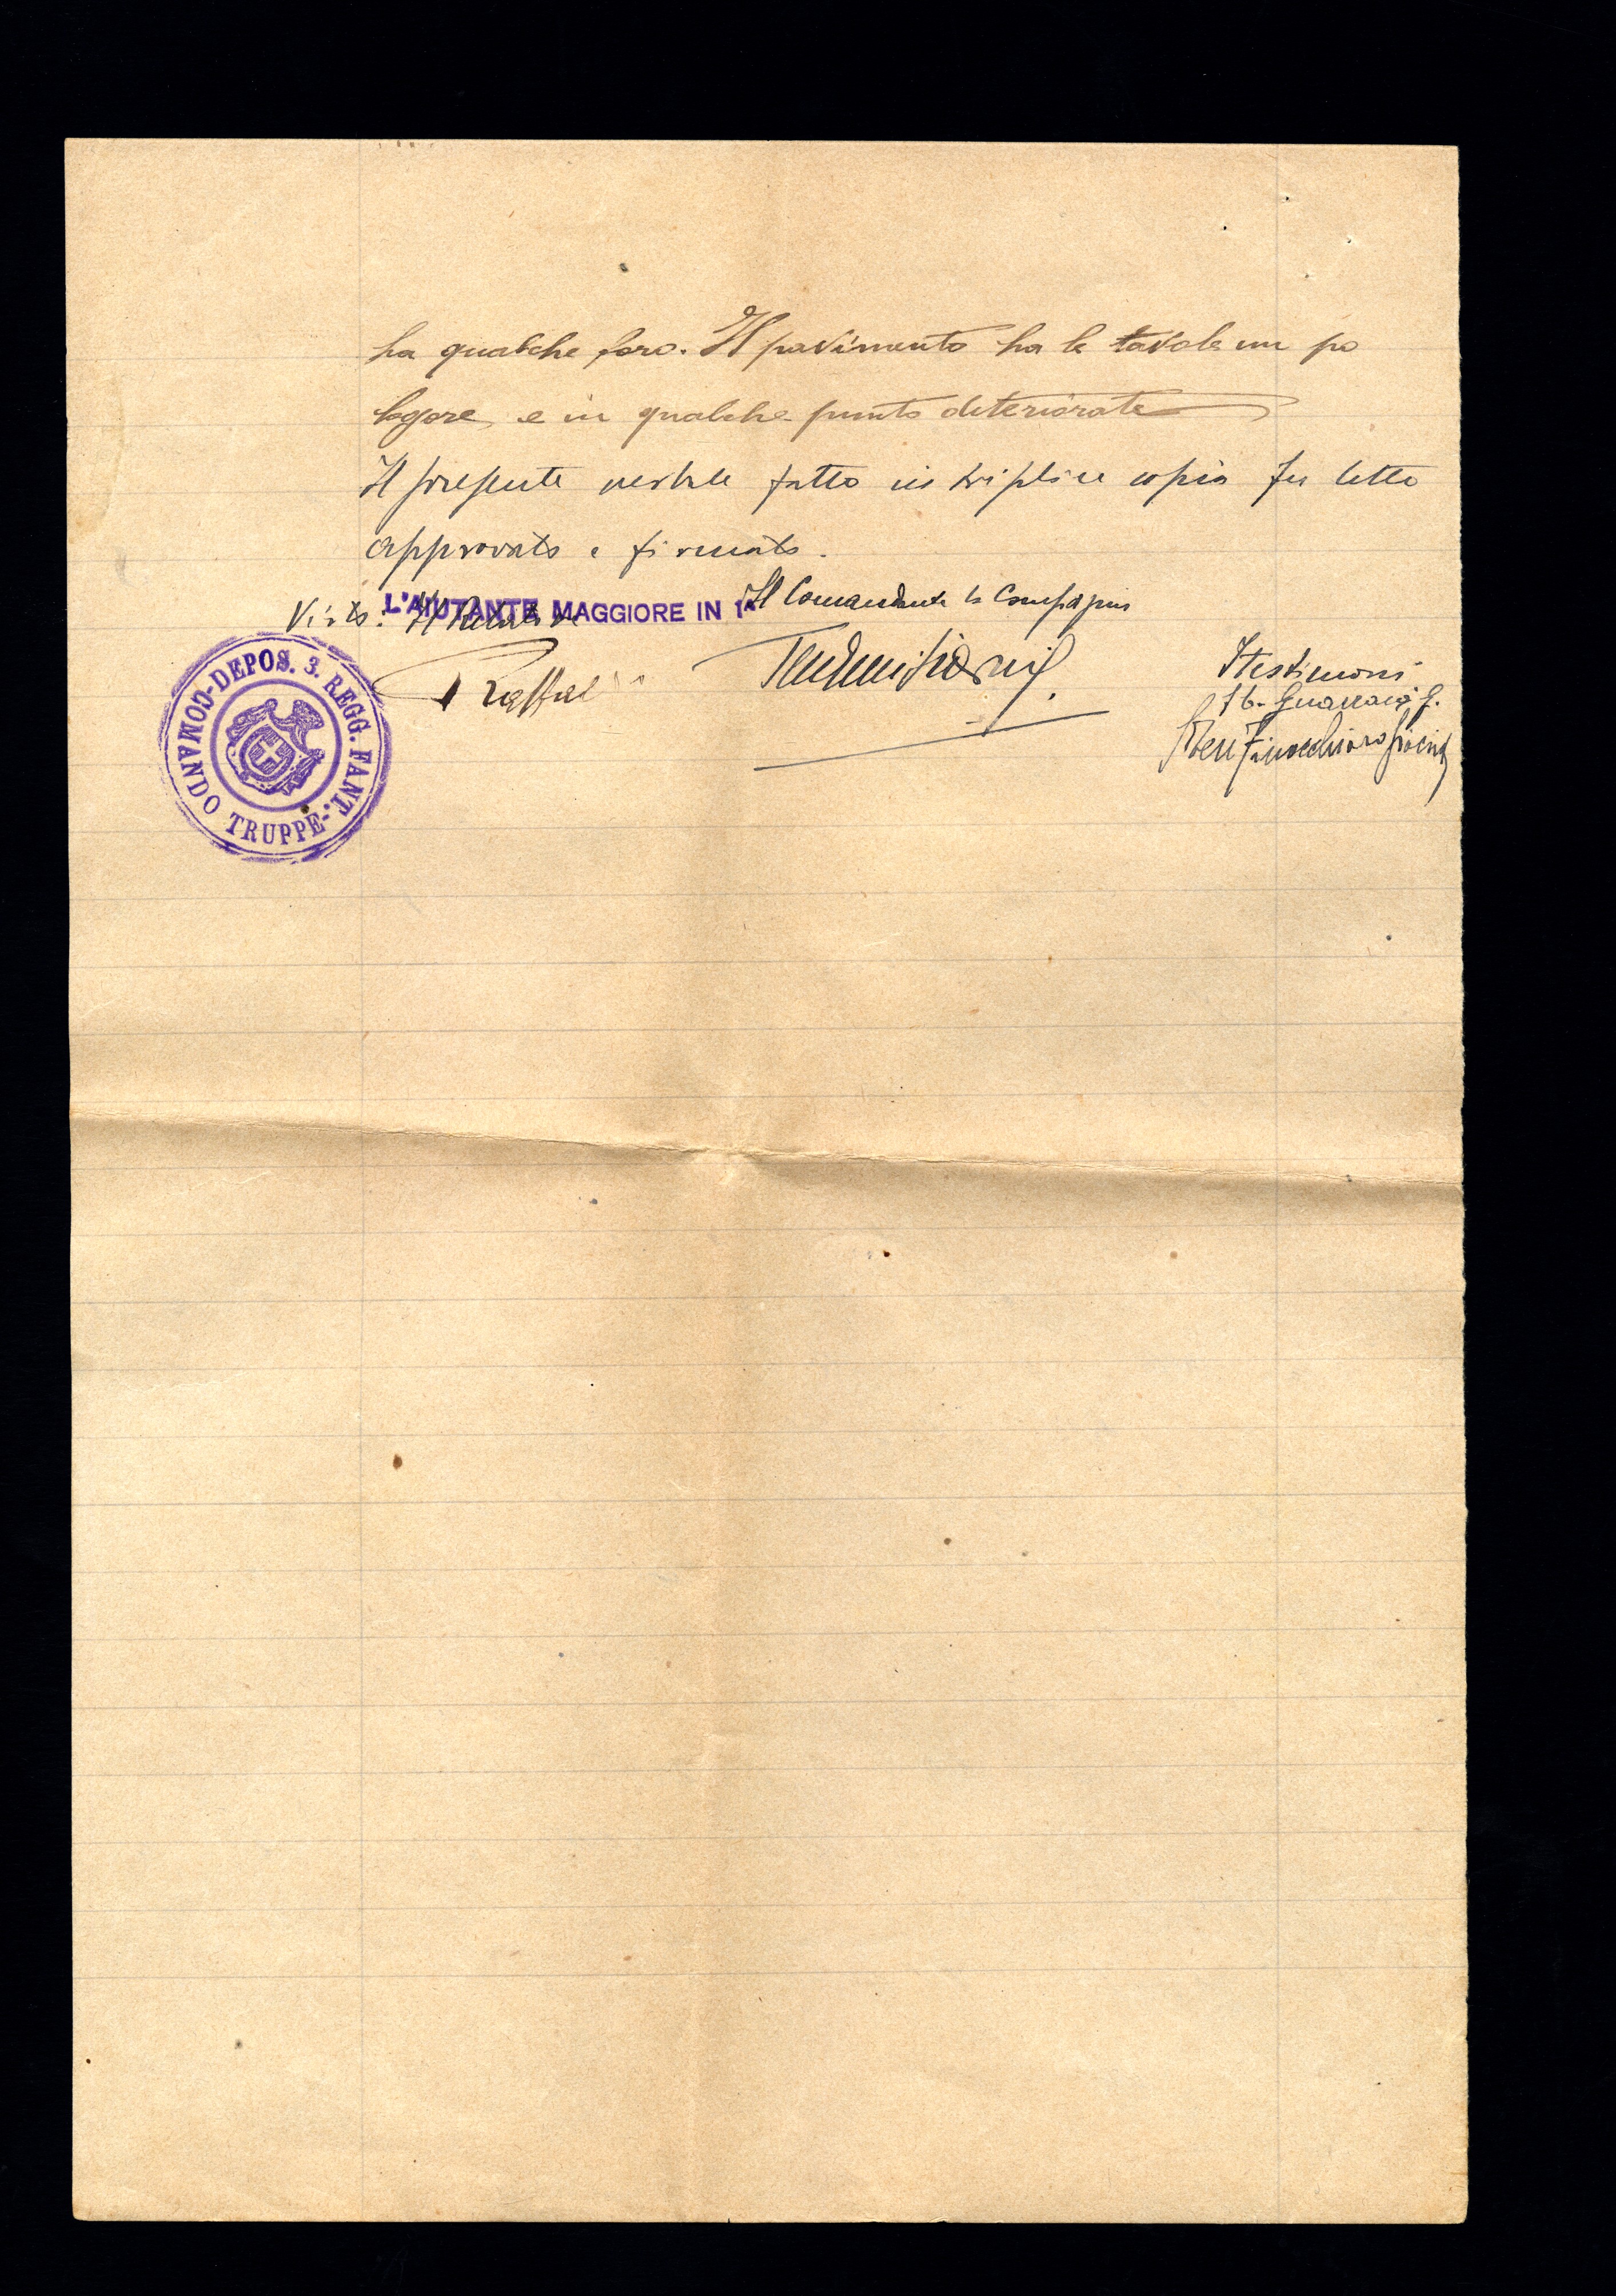 ha qualche foro. Il pavimento ha le tavole un po
logore, e in qualche punto deteriorate
Il presente verbale fatto in triplice copia fu letto
approvato e firmato.
Visto: Il Relatore
L'AIUTANTE MAGGIORE IN 1ª
Il Comandante la Compagnia
I testimoni
COMANDO TRUPPE-DEPOS. 3. REGG. FANT.